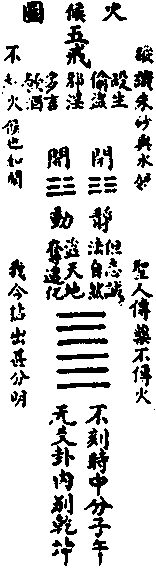 火候圖
五戒
殺生
偷盜
邪淫
多言
飲酒
縱識朱砂與水銀
不知火候也如閒
閉
開
靜
動
法自然
盜天地
奪造化
聖人傳藥不傳火
我今拈出甚分明
不刻時中分子午
无爻卦內別乾坤